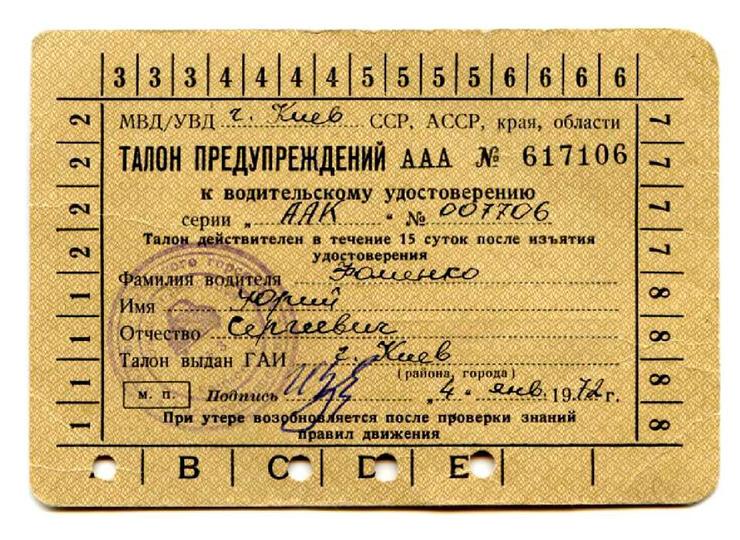 3 3 3 4 4 4 4 5 5 5 5 6 6 6 6
2 2 2 2 1 1 1 1
МВД/УВД г. Киев ССР, АССР, края, области
ТАЛОН ПРЕДУПРЕЖДЕНИЙ ААА № 617106
к водительскому удостоверению
серии „ААК“ № 007706
Талон действителен в течение 15 суток после изъятия
удостоверения
Фамилия водителя Фоменко
Имя Юрий
Отчество Сергиевич
Талон выдан ГАИ г. Киев
(района, города)
м. п. Подпись „4“ янв. 1972г.
При утере возобновляется после проверки знаний
правил движения
7 7 7 7 7 8 8 8 8
A B C D E